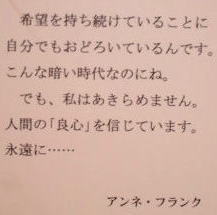 希望を持ち続けていることに
自分でもおどろいているんです。
こんな暗い時代なのにね。
でも、私はあきらめません。
人間の「良心」を信じています。
永遠に……
アンネ・フランク